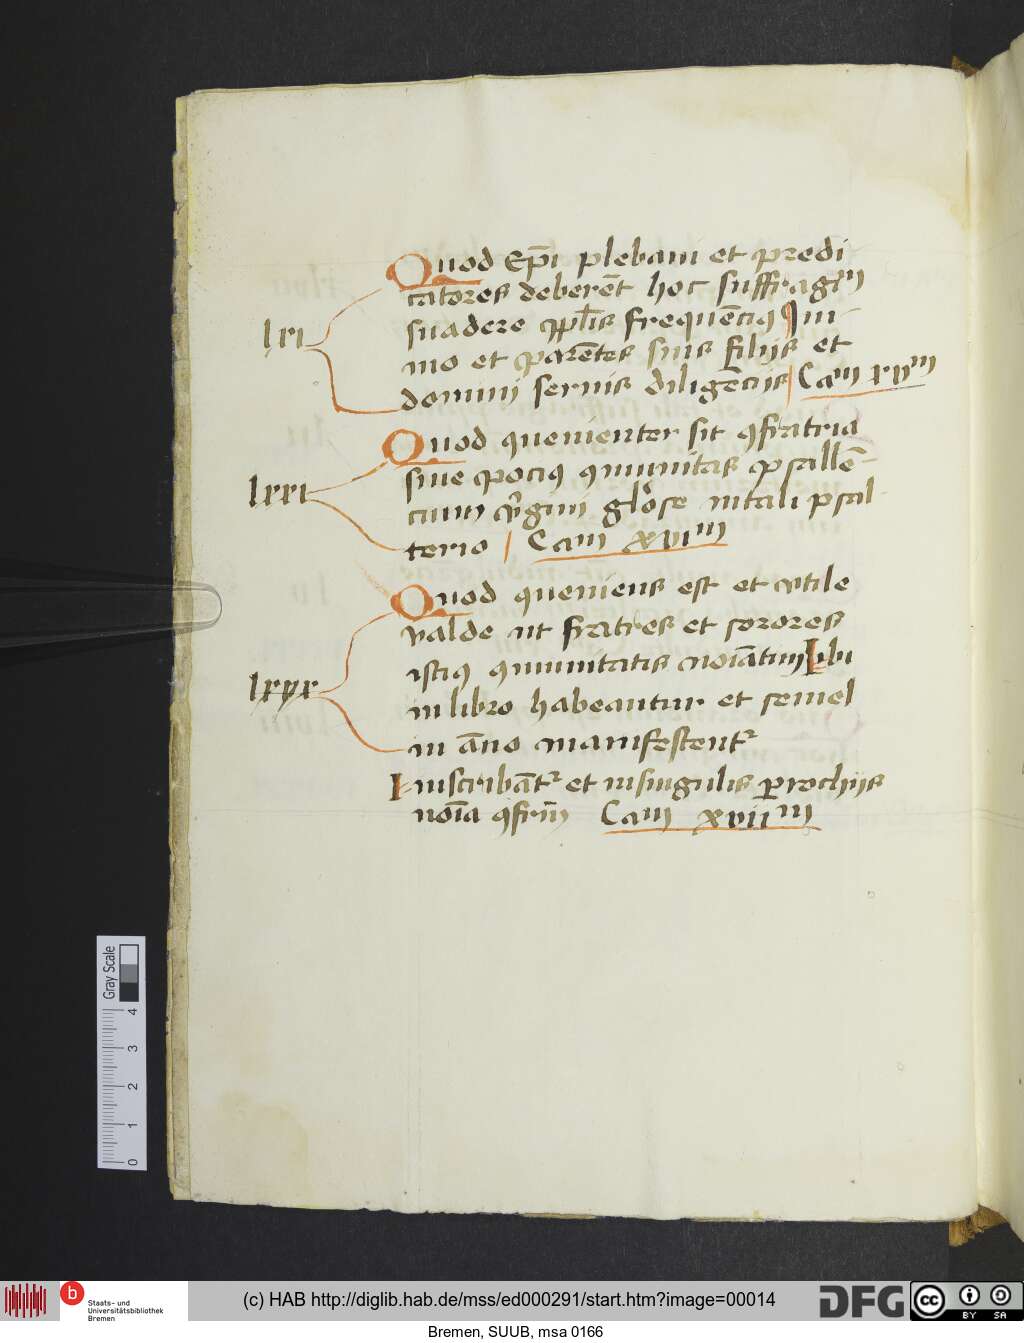 Quod Ep̄i plebani et predi
catores deberēt hoc suffragiū
lxi
suadere pp̄lis frequēcius Im
mo et parētes suis filijs et
domini seruis diligēcius Cam xvm
Quod ꝯueniēnter sit ꝯfratria
siue pocius ꝯmunitas psallē
lxxi
cium v̓gini glōse in tali psal
terio Cam xvim
Quod ꝯueniens est et vtile
valde ut fratres et sorores
istius ꝯmunitatis noīatim Ibi
lxxx
in libro habeantur et semel
in āno manifestent᷑
Inscribāt᷑ et in singulis p̱rochijs
noīa ꝯfrm̄ Cam xviim
Gray Scale
4
3
2
1
0
b
Staats- und
Universitätsbibliothek
Bremen
(c) HAB http://diglib.hab.de/mss/ed000291/start.htm?image=00014
DFG
cc BY SA
Bremen, SUUB, msa 0166